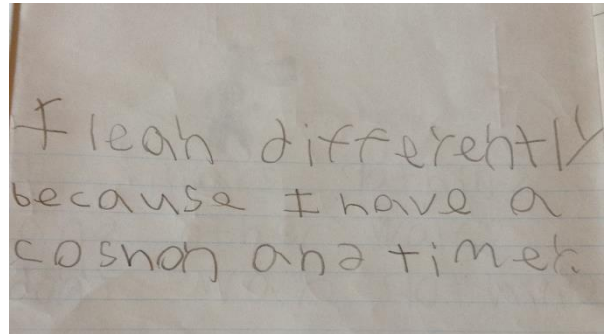 I leah differently
because I have a
coshon and timer.